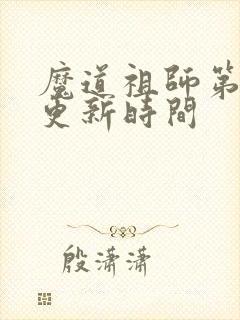 魔道祖師第
更新時間
殷瀟瀟